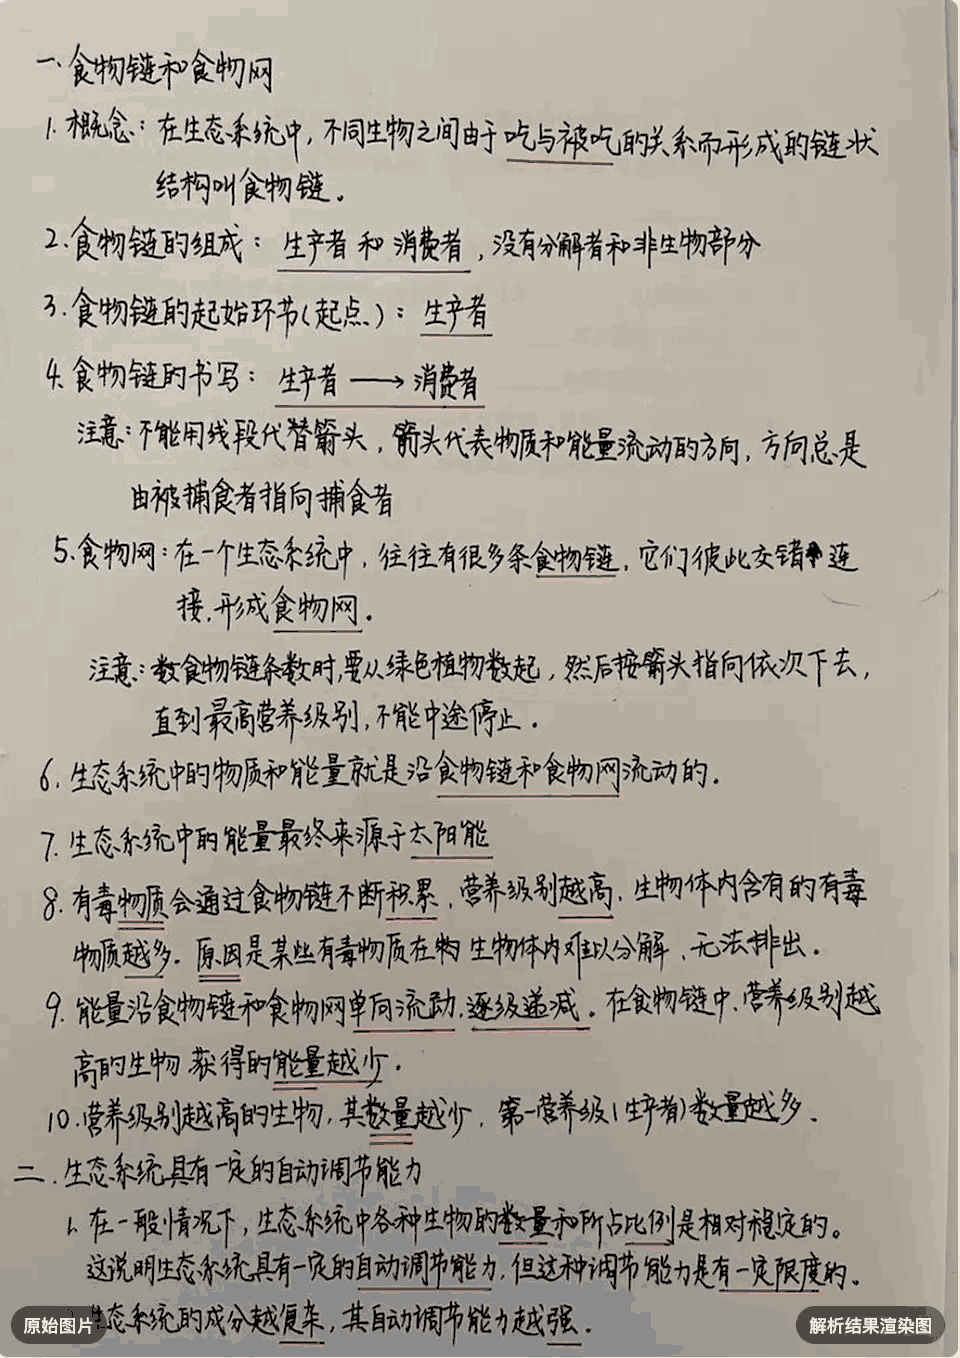 一、食物链和食物网
1. 概念：在生态系统中，不同生物之间由于吃与被吃的关系而形成的链状
结构叫食物链。
2、食物链的组成：生产者和消费者，没有分解者和非生物部分
3、食物链的起始环节（起点）：生产者
4、食物链的书写：生产者→消费者
注意：不能用线段代替箭头，箭头代表物质和能量流动的方向，方向总是
由被捕食者指向捕食者
5、食物网：在一个生态系统中，往往有很多条食物链，它们彼此交错连
接，形成食物网。
注意：数食物链条数时，要从绿色植物数起，然后按箭头指向依次下去，
直到最高营养级别，不能中途停止。
6、生态系统中的物质和能量就是沿食物链和食物网流动的。
7、生态系统中的能量最终来源于太阳能
8、有毒物质会通过食物链不断积累，营养级别越高，生物体内含有的有毒
物质越多。原因是某些有毒物质在生物体内难以分解、无法排出。
9、能量沿食物链和食物网单向流动、逐级递减。在食物链中、营养级别越
高的生物获得的能量越少。
10、营养级别越高的生物，其数量越少，第一营养级（生产者）数量越多。
二、生态系统具有一定的自动调节能力
1、在一般情况下，生态系统中各种生物的数量和所占比例是相对稳定的。
这说明生态系统具有一定的自动调节能力，但这种调节能力是有一定限度的。
生态系统的成分越复杂，其自动调节能力越强。
原始图片
解析结果渲染图